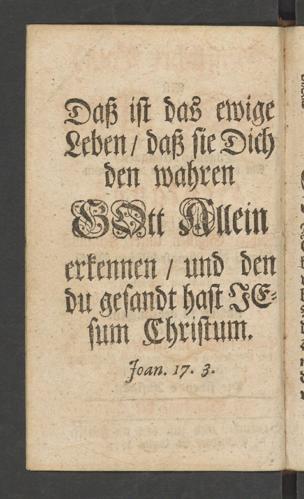 Daß ist das ewige
Leben / daß sie Dich
den wahren
GOtt Allein
erkennen / und den
du gesandt hast JE-
sum Christum.
Joan. 17. 3.